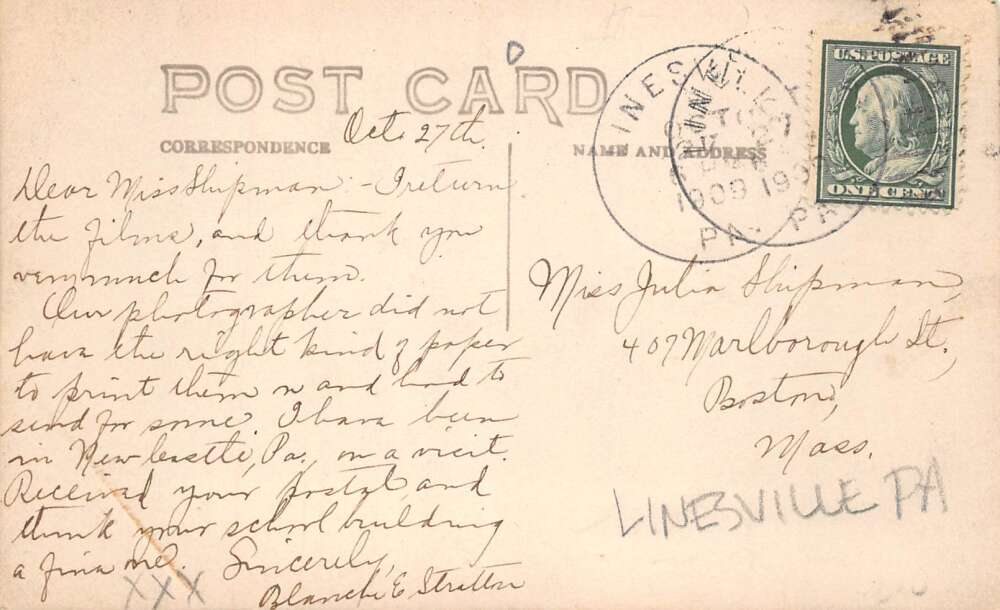 POST CARD
CORRESPONDENCE
NAME AND ADDRESS
Oct. 27th.
Dear Miss Shipman:- I return
the films, and thank you
very much for them.
Our photographer did not
have the right kind of paper
to print them on and had to
send for some. I have been
in New Castle, Pa., on a visit.
Received your postal and
think your school building
a fine one. Sincerely,
Blanche E Stratton
XXX
LINESVILLE
1909
PA.
U.S. POSTAGE
ONE CENT
Miss Julia Shipman,
407 Marlborough St.,
Boston,
Mass.
LINESVILLE PA